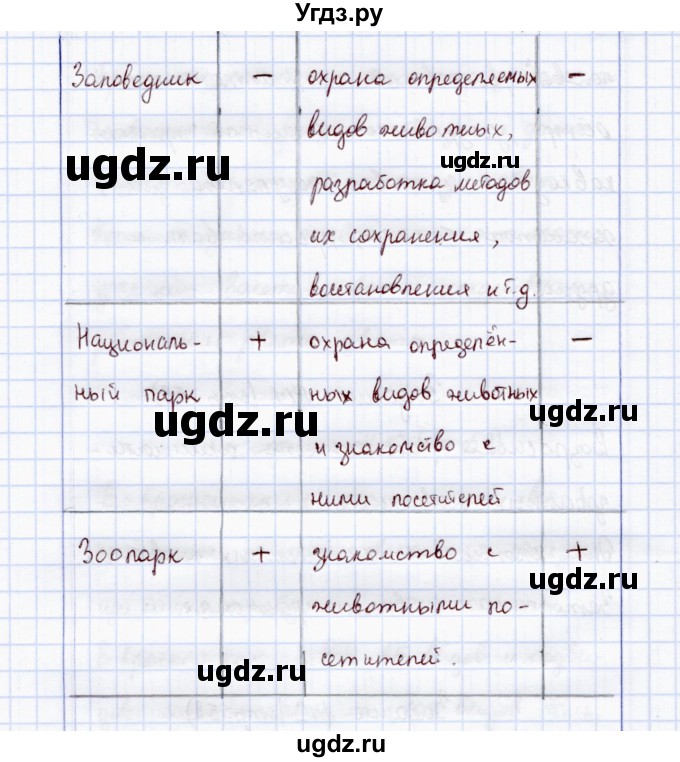 Угдз.ру
Заповедник – охрана определяемых –
видов животных,
ugdz.ru
ugdz.ru
разработка методов
их сохранения,
восстановления и т.д.
Националь- + охрана определён- –
ный парк ных видов животных
ugdz.ru
ugdz.ru
и знакомство с
ними посетителей
Зоопарк + знакомство с +
ugdz.ru
животными по-
сетителей.
ugdz.ru
ugdz.ru